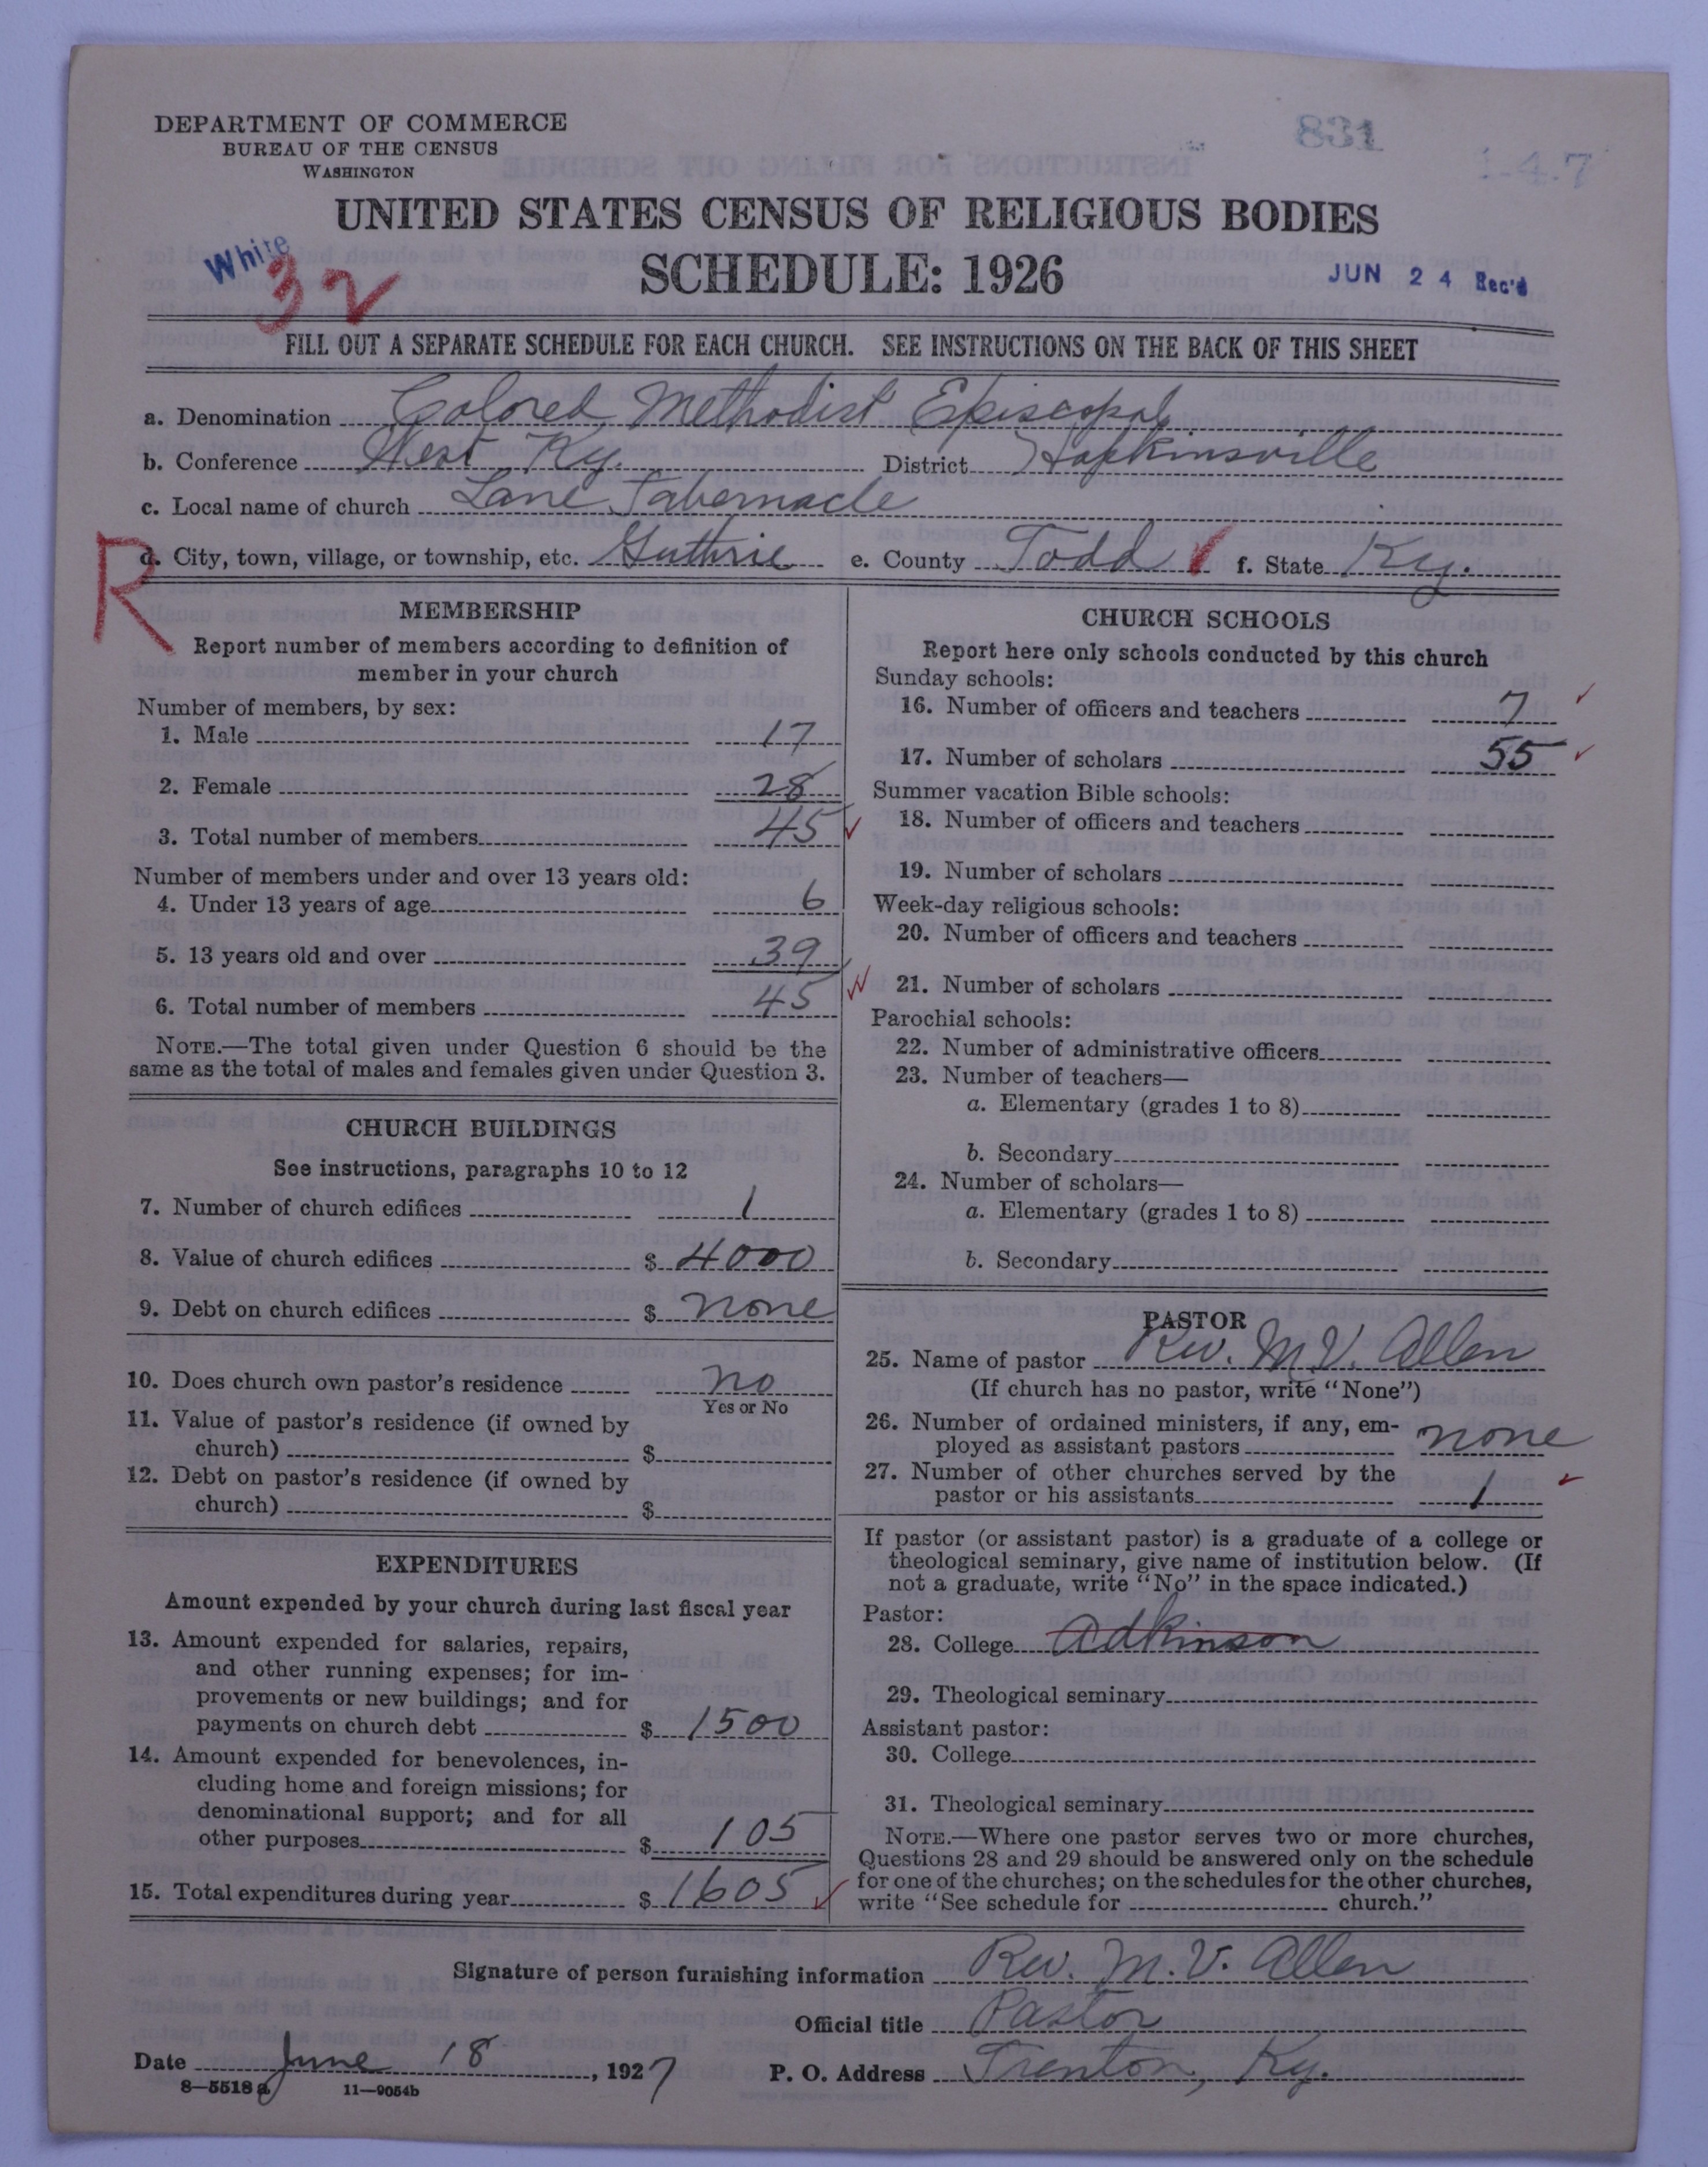 DEPARTMENT OF COMMERCE
BUREAU OF THE CENSUS
WASHINGTON
831
1-4-7
UNITED STATES CENSUS OF RELIGIOUS BODIES
White
32
SCHEDULE: 1926
JUN 24 Rec'd
FILL OUT A SEPARATE SCHEDULE FOR EACH CHURCH. SEE INSTRUCTIONS ON THE BACK OF THIS SHEET
a. Denomination Colored Methodist Episcopal
b. Conference West Ky. District Hopkinsville
c. Local name of church Lane Tabernacle
R
d. City, town, village, or township, etc. Guthrie e. County Todd f. State Ky.
MEMBERSHIP
Report number of members according to definition of
member in your church
Number of members, by sex:
1. Male 17
2. Female 28
3. Total number of members 45
Number of members under and over 13 years old:
4. Under 13 years of age 6
5. 13 years old and over 39
6. Total number of members 45
NOTE.—The total given under Question 6 should be the
same as the total of males and females given under Question 3.
CHURCH BUILDINGS
See instructions, paragraphs 10 to 12
7. Number of church edifices 1
8. Value of church edifices $ 4000
9. Debt on church edifices $ none
10. Does church own pastor's residence no
Yes or No
11. Value of pastor's residence (if owned by
church) $
12. Debt on pastor's residence (if owned by
church) $
EXPENDITURES
Amount expended by your church during last fiscal year
13. Amount expended for salaries, repairs,
and other running expenses; for im-
provements or new buildings; and for
payments on church debt $ 1500
14. Amount expended for benevolences, in-
cluding home and foreign missions; for
denominational support; and for all
other purposes $ 105
15. Total expenditures during year $ 1605
CHURCH SCHOOLS
Report here only schools conducted by this church
Sunday schools:
16. Number of officers and teachers 7
17. Number of scholars 55
Summer vacation Bible schools:
18. Number of officers and teachers
19. Number of scholars
Week-day religious schools:
20. Number of officers and teachers
21. Number of scholars
Parochial schools:
22. Number of administrative officers
23. Number of teachers—
a. Elementary (grades 1 to 8)
b. Secondary
24. Number of scholars—
a. Elementary (grades 1 to 8)
b. Secondary
PASTOR
25. Name of pastor Rev. M.V. Allen
(If church has no pastor, write "None")
26. Number of ordained ministers, if any, em-
ployed as assistant pastors none
27. Number of other churches served by the
pastor or his assistants 1
If pastor (or assistant pastor) is a graduate of a college or
theological seminary, give name of institution below. (If
not a graduate, write "No" in the space indicated.)
Pastor:
28. College Adkinson
29. Theological seminary
Assistant pastor:
30. College
31. Theological seminary
NOTE.—Where one pastor serves two or more churches,
Questions 28 and 29 should be answered only on the schedule
for one of the churches; on the schedules for the other churches,
write "See schedule for church."
Signature of person furnishing information Rev. M.V. Allen
Official title Pastor
Date June 18, 1927 P. O. Address Trenton, Ky.
8—5518a 11—9054b